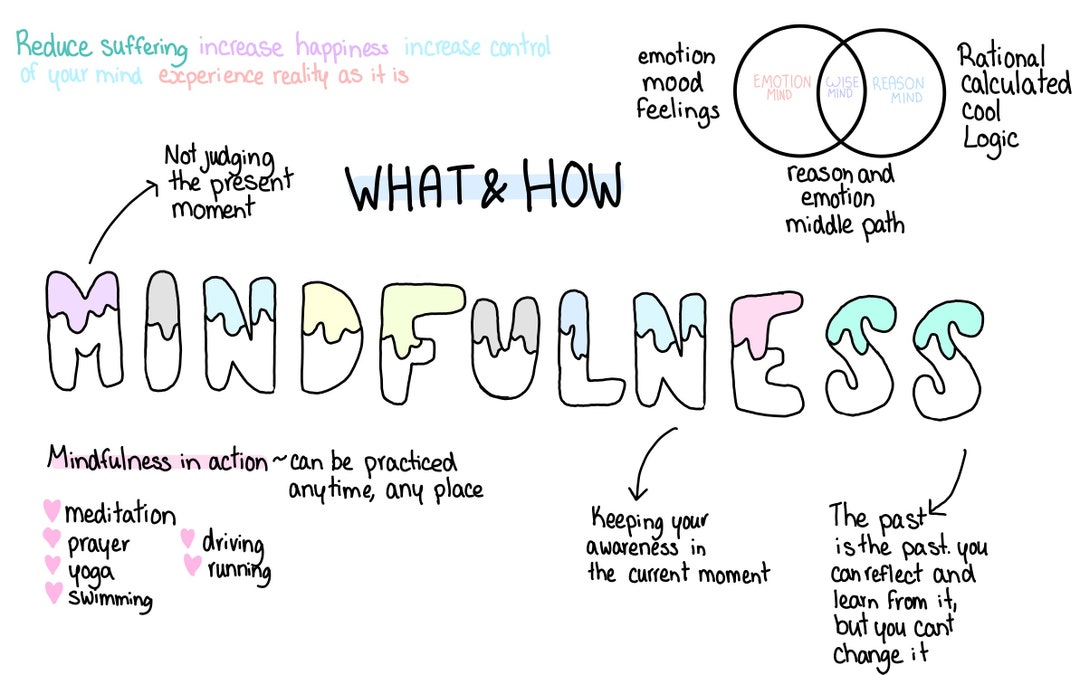 Reduce suffering increase happiness increase control
of your mind experience reality as it is
emotion
mood
feelings
EMOTION
MIND
WISE
MIND
REASON
MIND
Rational
calculated
cool
Logic
reason and
emotion
middle path
Not judging
the present
moment
WHAT & HOW
MINDFULNESS
Mindfulness in action ~ can be practiced
anytime, any place
meditation
prayer
yoga
swimming
driving
running
Keeping your
awareness in
the current moment
The past
is the past. you
can reflect and
learn from it,
but you cant
change it